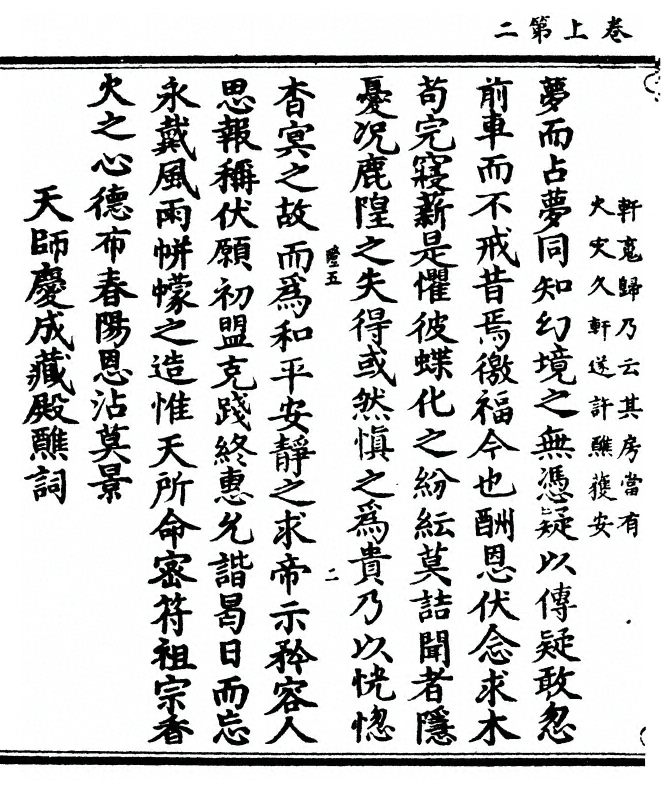 卷上第二
軒寃歸乃云其房當有
火灾久軒遂許醮獲安
夢而占夢同知幻境之無憑疑以傳疑敢忽
前車而不戒昔焉徼福今也酬恩伏念求木
苟完寢薪是懼彼蝶化之紛紜莫詰聞者隱
憂况鹿隍之失得或然愼之爲貴乃以恍惚
杳㝠之故而爲和平安靜之求帝示矜容人
隆五
二
思報稱伏願初盟克踐終惠允諧曷日而忘
永戴風雨帡幪之造惟天所命密符祖宗香
火之心德布春陽恩沾莫景
天師慶成藏殿醮詞